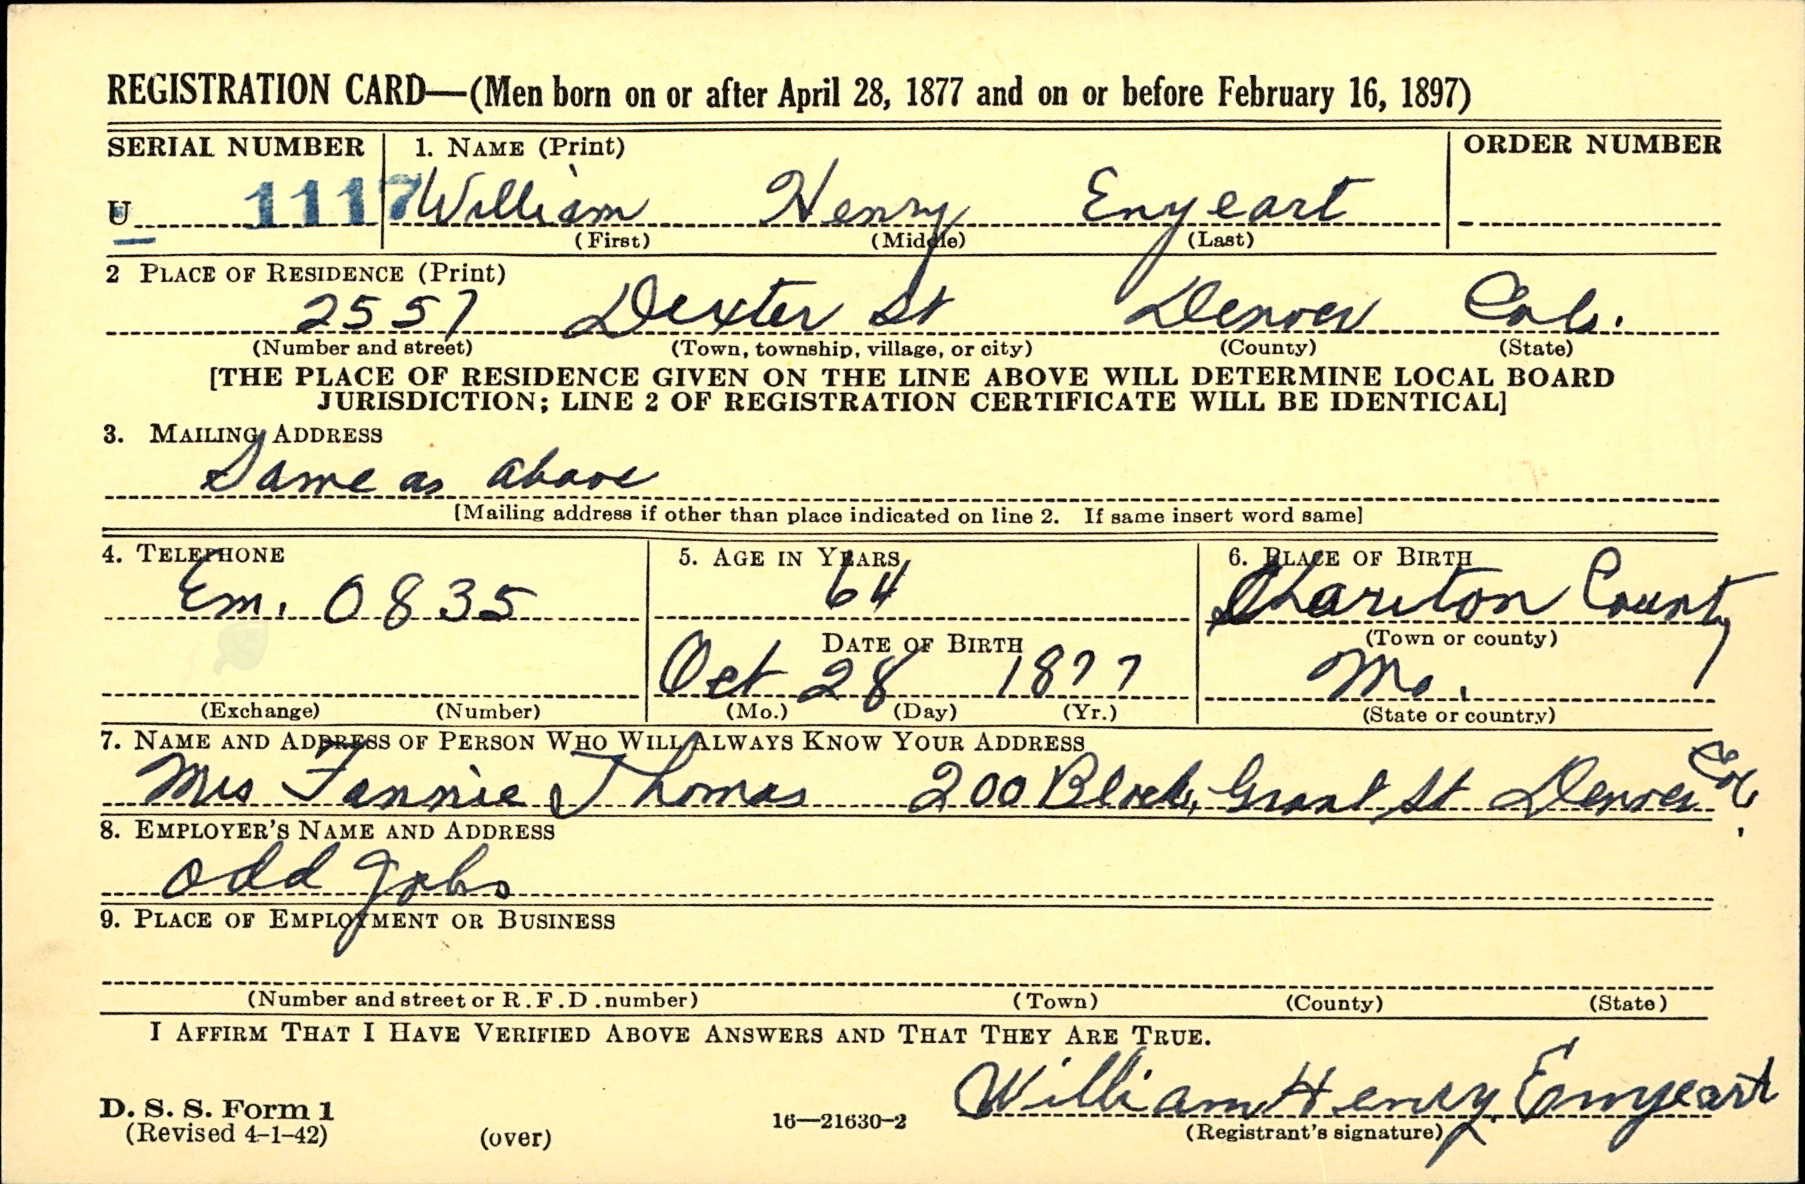 REGISTRATION CARD—(Men born on or after April 28, 1877 and on or before February 16, 1897)
SERIAL NUMBER 1. NAME (Print) ORDER NUMBER
U 1117 William Henry Enyeart
(First) (Middle) (Last)
2 PLACE OF RESIDENCE (Print)
2557 Dexter St Denver Colo.
(Number and street) (Town, township, village, or city) (County) (State)
[THE PLACE OF RESIDENCE GIVEN ON THE LINE ABOVE WILL DETERMINE LOCAL BOARD
JURISDICTION; LINE 2 OF REGISTRATION CERTIFICATE WILL BE IDENTICAL]
3. MAILING ADDRESS
Same as above
[Mailing address if other than place indicated on line 2. If same insert word same]
4. TELEPHONE 5. AGE IN YEARS 6. PLACE OF BIRTH
Em. 0835 64 Chariton County
DATE OF BIRTH (Town or county)
Oct 28 1877 Mo.
(Exchange) (Number) (Mo.) (Day) (Yr.) (State or country)
7. NAME AND ADDRESS OF PERSON WHO WILL ALWAYS KNOW YOUR ADDRESS
Mrs Fannie Thomas 200 Block, Grant St Denver Col.
8. EMPLOYER'S NAME AND ADDRESS
Odd Jobs
9. PLACE OF EMPLOYMENT OR BUSINESS
(Number and street or R.F.D. number) (Town) (County) (State)
I AFFIRM THAT I HAVE VERIFIED ABOVE ANSWERS AND THAT THEY ARE TRUE.
William Henry Enyeart
D. S. S. Form 1 16—21630-2 (Registrant's signature)
(Revised 4-1-42) (over)